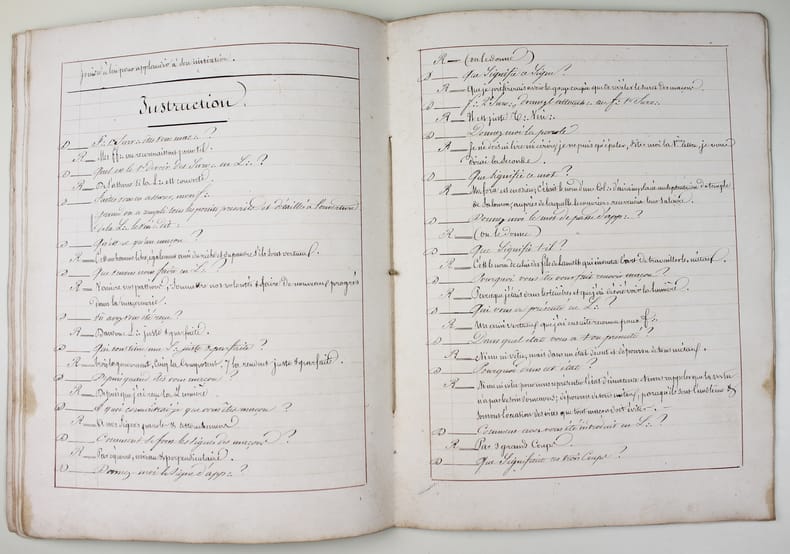 pour applaudir à son initiation.
Instruction.
D — F∴ 1er Surv∴ êtes vous maç∴ ?
R — Mes FF∴ me reconnaissent pour tel.
D — Quel est le 1er devoir des Surv∴ en L∴ ?
R — De s'assurer si la L∴ est couverte.
D — Faites vous en assurer, mon f∴
quand on a rempli tous les points prescrits et détaillés à l'ouverture
de la L∴ le vén∴ dit :
D — Qu'est ce qu'un maçon ?
R — C'est un homme libre, également ami du riche et du pauvre s'ils sont vertueux.
D — Que venons nous faire en L∴ ?
R — Vaincre nos passions, soumettre nos volontés & faire de nouveaux progrès
dans la maçonnerie.
D — Où avez vous été reçu ?
R — Dans une L∴ juste & parfaite.
D — Que faut il pour qu'une L∴ soit juste & parfaite ?
R — Trois la gouvernent, cinq la composent, 7 la rendent juste & parfaite.
D — Depuis quand êtes vous maçon ?
R — Depuis que j'ai reçu la Lumière.
D — A quoi connaitrai je que vous êtes maçon ?
R — A mes signes parole & attouchement
D — Comment se font les signes des maçons ?
R — Par équerre, niveau & perpendiculaire.
D — Donnez moi le signe d'app∴ ?
R — (on le donne)
D — Que Signifie ce Signe ?
R — Que je préférerais avoir la gorge coupée que de révéler les secrets des maçons.
D — F∴ 2e Surv∴ donnez l'attouch∴ au f∴ 1er Surv∴
R — Il est juste T∴ Vén∴
D — Donnez moi la parole
R — Je ne dois ni lire ni écrire, je ne puis qu'épeler, dites moi la 1ère lettre, je vous
dirai la seconde.
D — Que signifie ce mot ?
R — Ma force est en dieu ; c'était le nom d'une Col∴ d'airain placée au septentrion du temple
de Salomon, auprès de laquelle les app∴ recevaient leur salaire.
D — Donnez moi le mot de passe d'app∴ ?
R — (on le donne)
D — Que Signifie t-il ?
R — C'est le nom de celui des fils de Lameth qui inventa l'art de travailler les métaux.
D — Pourquoi vous êtes vous fait recevoir maçon ?
R — Parceque j'étais dans les ténèbres et que j'ai désiré voir la lumière.
D — Qui vous a présenté en L∴ ?
R — Un ami vertueux que j'ai ensuite reconnu pour f∴
D — Dans quel état vous a t-on présenté ?
R — Ni nu ni vêtu, mais dans un état décent et dépourvu de tous métaux.
D — Pourquoi dans cet état ?
R — Ni nu ni vêtu pour nous représenter l'état d'innocence & nous rappeler que la vertu
n'a pas besoin d'ornemens ; dépourvu de tous métaux, parcequ'ils sont l'emblème &
souvent l'occasion des vices que tout maçon doit éviter.
D — Comment avez vous été introduit en L∴ ?
R — Par 3 grands Coups.
D — Que Signifient ces trois Coups ?